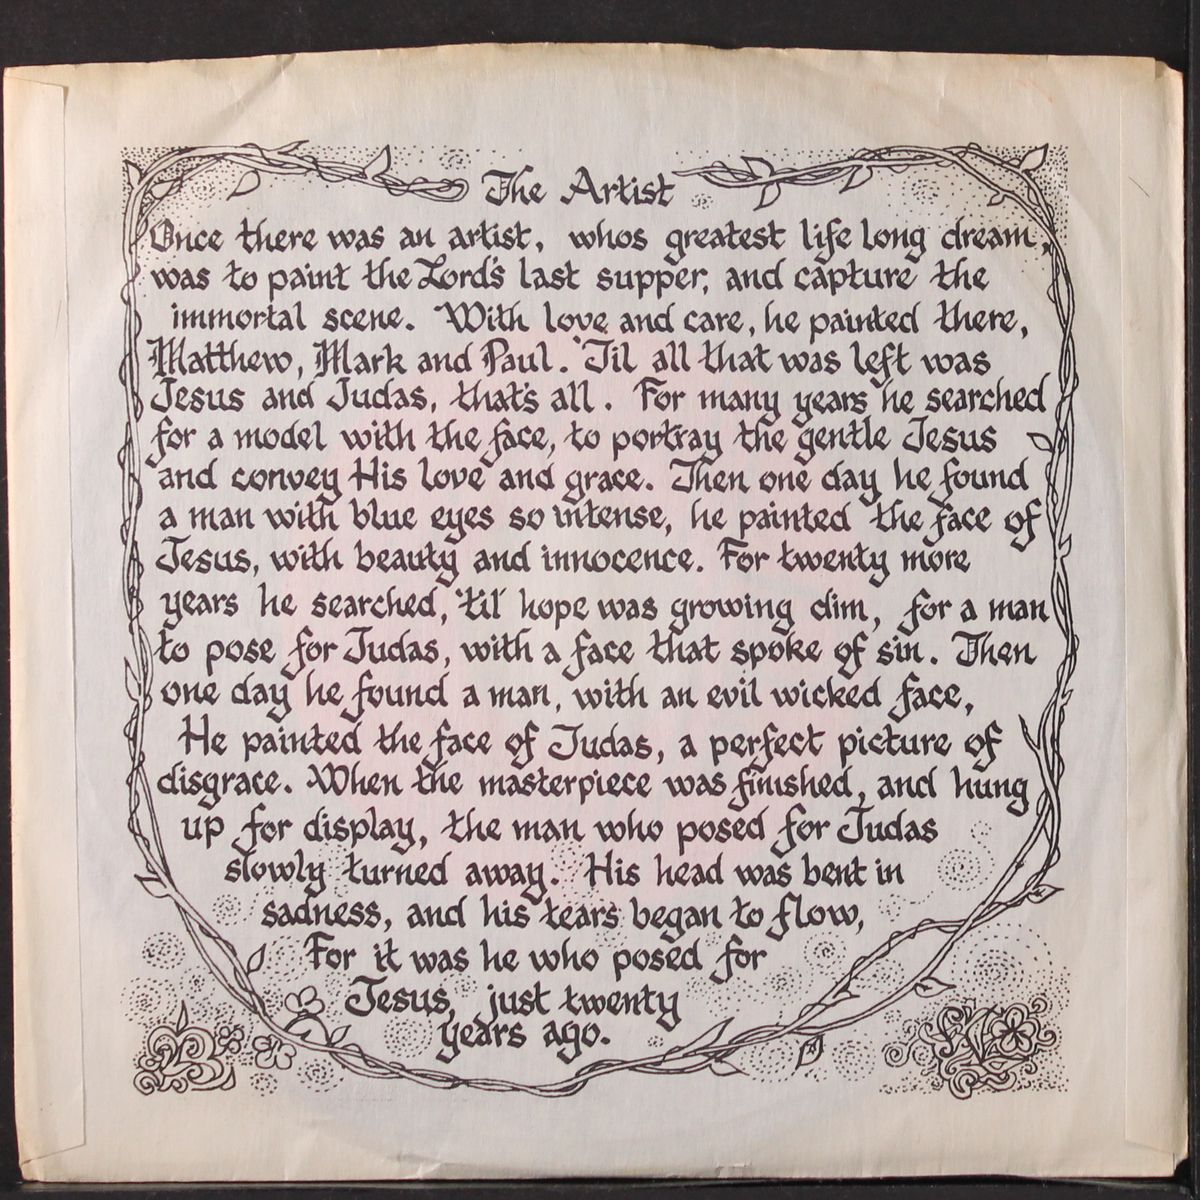 The Artist
Once there was an artist, whos greatest life long dream,
was to paint the Lord's last supper, and capture the
immortal scene. With love and care, he painted there,
Matthew, Mark and Paul. 'Til all that was left was
Jesus and Judas, that's all. For many years he searched
for a model with the face, to portray the gentle Jesus
and convey His love and grace. Then one day he found
a man with blue eyes so intense, he painted the face of
Jesus, with beauty and innocence. For twenty more
years he searched, 'til hope was growing dim, for a man
to pose for Judas, with a face that spoke of sin. Then
one day he found a man, with an evil wicked face,
He painted the face of Judas, a perfect picture of
disgrace. When the masterpiece was finished, and hung
up for display, the man who posed for Judas
slowly turned away. His head was bent in
sadness, and his tears began to flow,
For it was he who posed for
Jesus, just twenty
years ago.